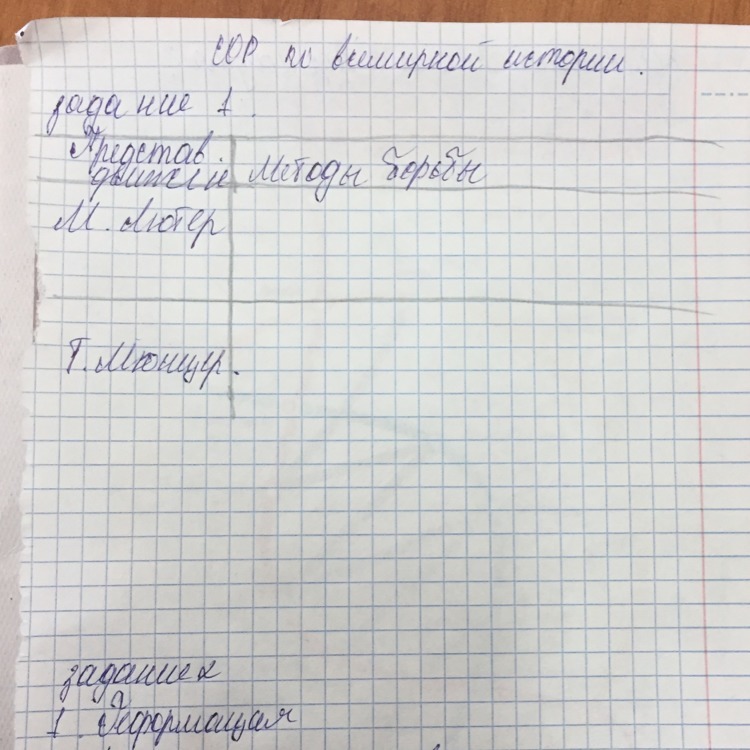 СОР по всемирной истории.
задание 1.
Представ.
движен Методы борьбы
М. Лютер
Т. Мюнцер.
задание 2
1. Реформация